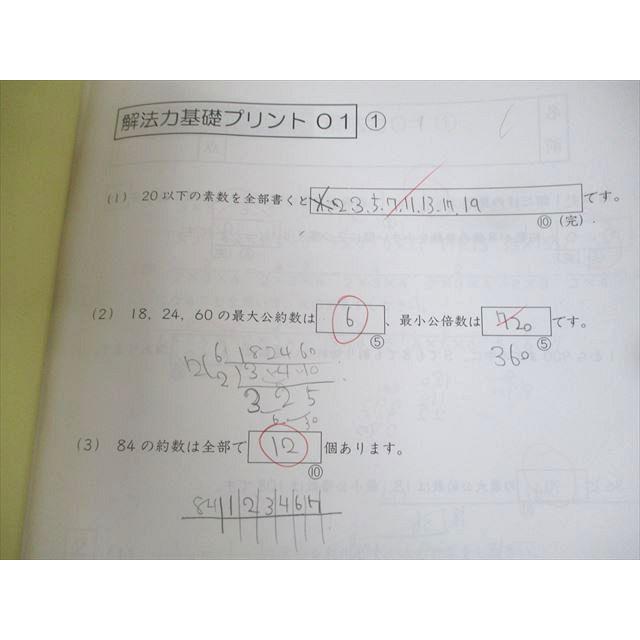 解法力基礎プリント 01 ①
(1) 20以下の素数を全部書くと 2 3.5.7.11.13.17.19 です。
⑩ (完)
(2) 18, 24, 60の最大公約数は 6 、最小公倍数は 720 です。
⑤ ⑤
360
6 18 24 60
12 2 3 4 10
3 2 5
(3) 84の約数は全部で 12 個あります。
⑩
84 1 2 3 4 6 7